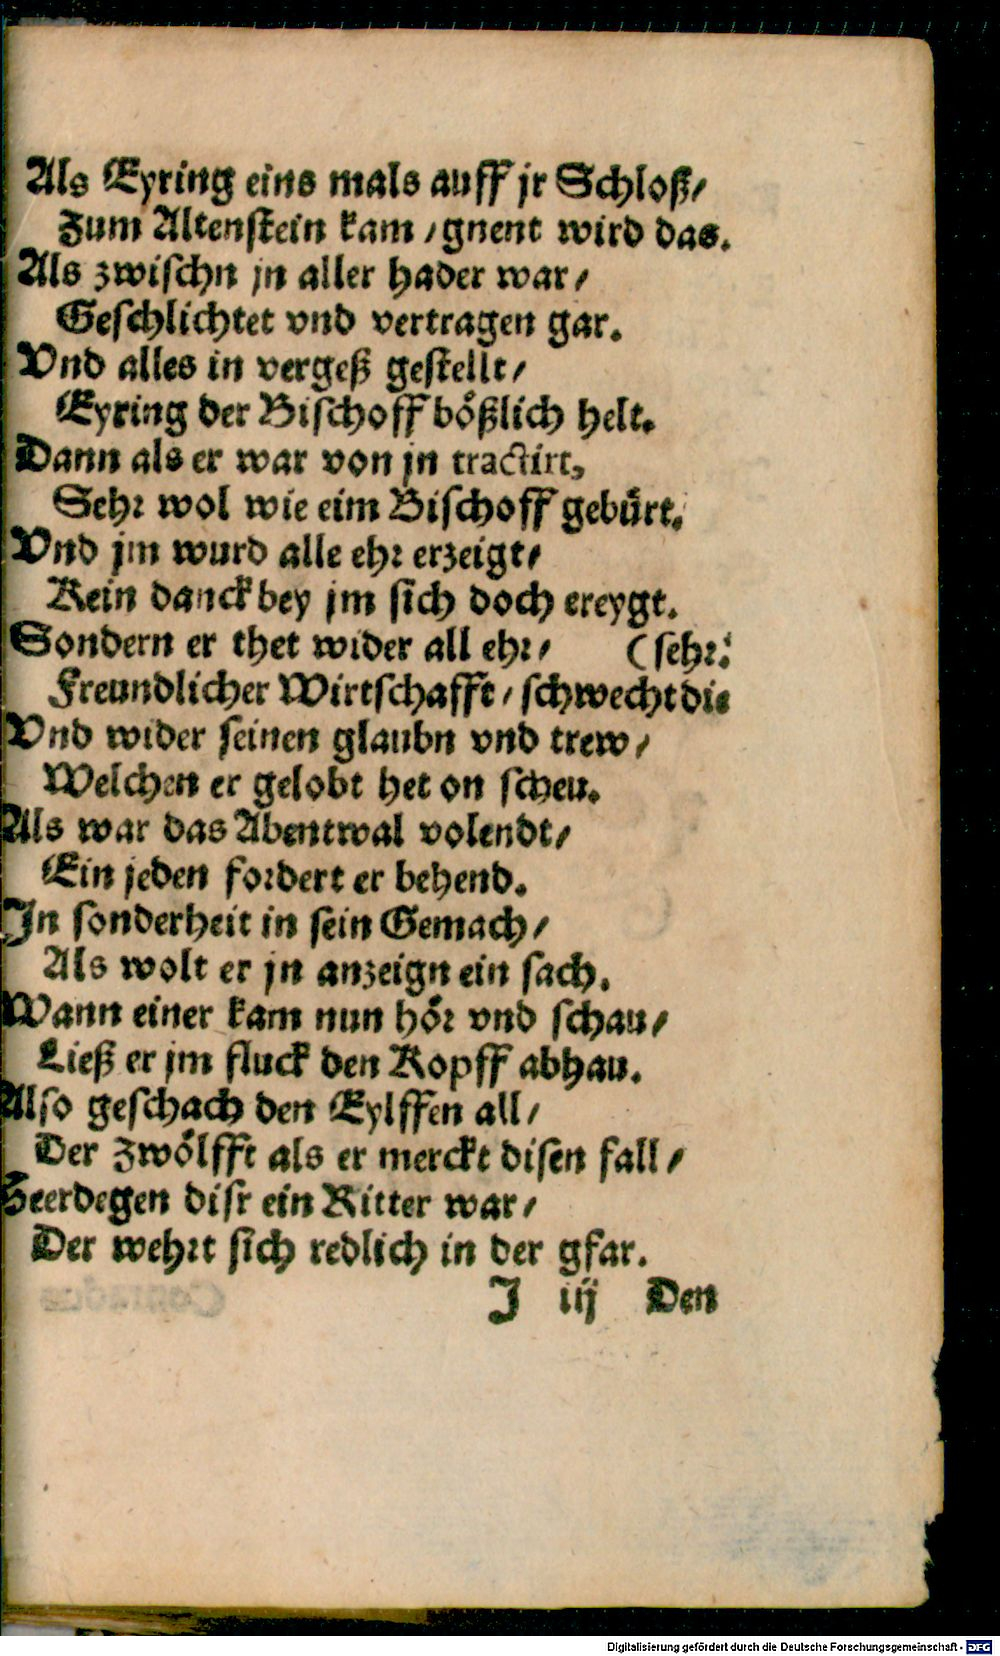 Als Eyring eins mals auff jr Schloß/
Zum Altenstein kam / gnent wird das.
Als zwischn jn aller hader war /
Geschlichtet vnd vertragen gar.
Vnd alles in vergeß gestellt /
Eyring der Bischoff bößlich helt.
Dann als er war von jn tractirt,
Sehr wol wie eim Bischoff gebürt.
Vnd jm wurd alle ehr erzeigt/
Kein danck bey jm sich doch ereygt.
Sondern er thet wider all ehr / (sehr.
Freundlicher Wirtschafft / schwecht die
Vnd wider seinen glaubn vnd trew /
Welchen er gelobt het on scheu.
Als war das Abentmal volendt /
Ein jeden fordert er behend.
In sonderheit in sein Gemach /
Als wolt er jn anzeign ein sach.
Wann einer kam nun hör vnd schau /
Ließ er jm fluck den Kopff abhau.
Also geschach den Eylffen all /
Der Zwölfft als er merckt disen fall /
Heerdegen disr ein Ritter war /
Der wehrt sich redlich in der gfar.
J iij Den
Digitalisierung gefördert durch die Deutsche Forschungsgemeinschaft - DFG